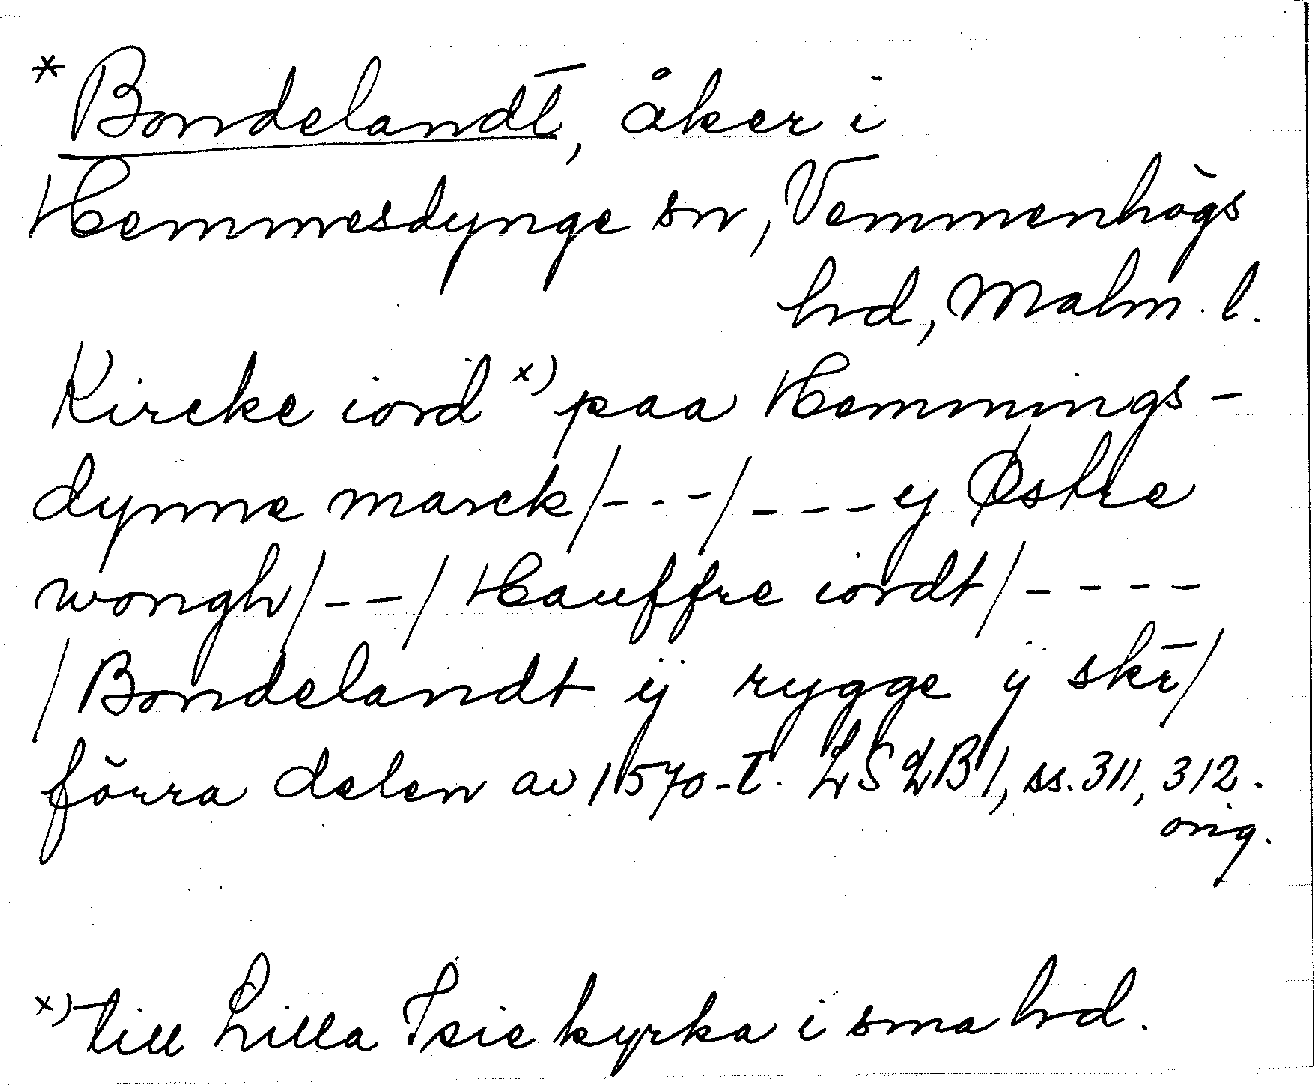 *Bondelandt, åker i
Hemmesdynge sn, Vemmenhögs
hrd, Malm. l.
Kircke iord x) paa Hemmings-
dynne marck/---/ ---- y Østre
wongh/--/ Hauffre iordt/----
/Bondelandt ij rygge ij skr/
förra delen av 1570-t. LSLB 1, ss. 311, 312.
orig.
x) till Lilla Isie kyrka i sma hrd.